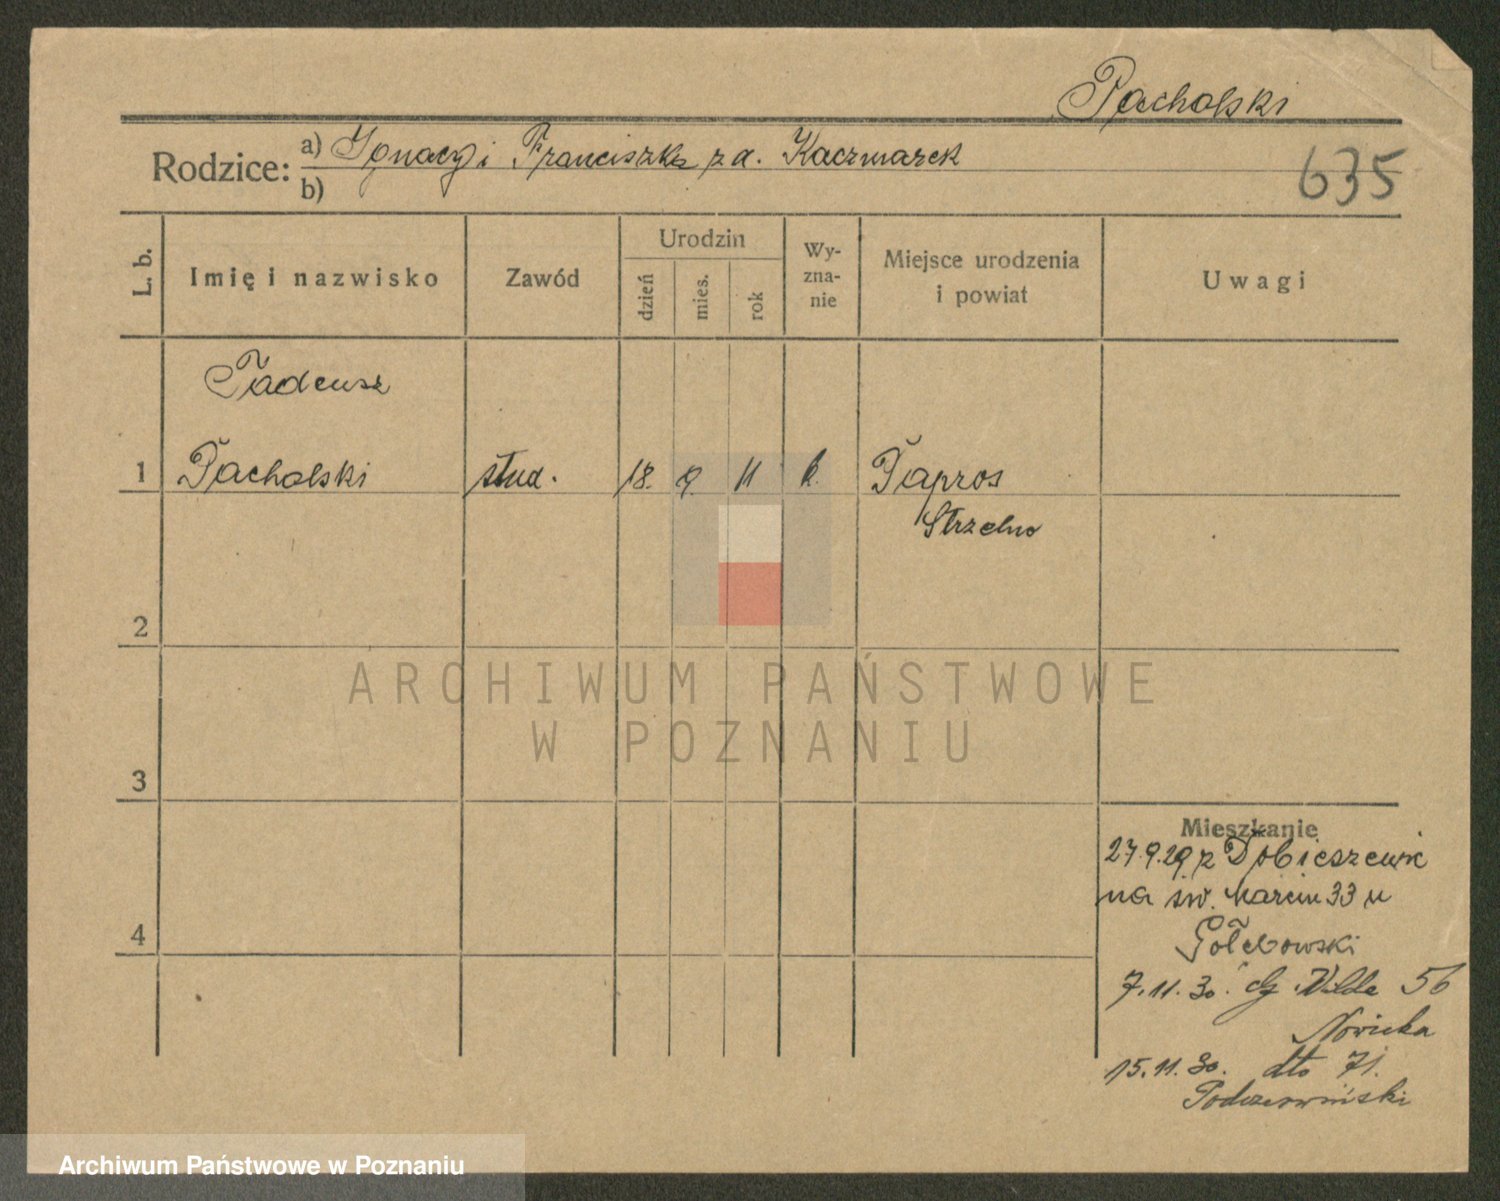 Pacholski
Rodzice: a) Ignacy i Franciszka z d. Kaczmarek
b)
635
L. b.
Imię i nazwisko
Zawód
Urodzin
dzień
mies.
rok
Wy-
zna-
nie
Miejsce urodzenia
i powiat
Uwagi
Tadeusz
1 Pacholski stud. 18. 9. 11 k.
Strzelno
2
3
4
Mieszkanie
27.9.29 z
na św. Marcin 33 u
Gołębowski
7.11.30. Wilda 56
Nowicka
15.11.30. dto 71.
ARCHIWUM PAŃSTWOWE
W POZNANIU
Archiwum Państwowe w Poznaniu